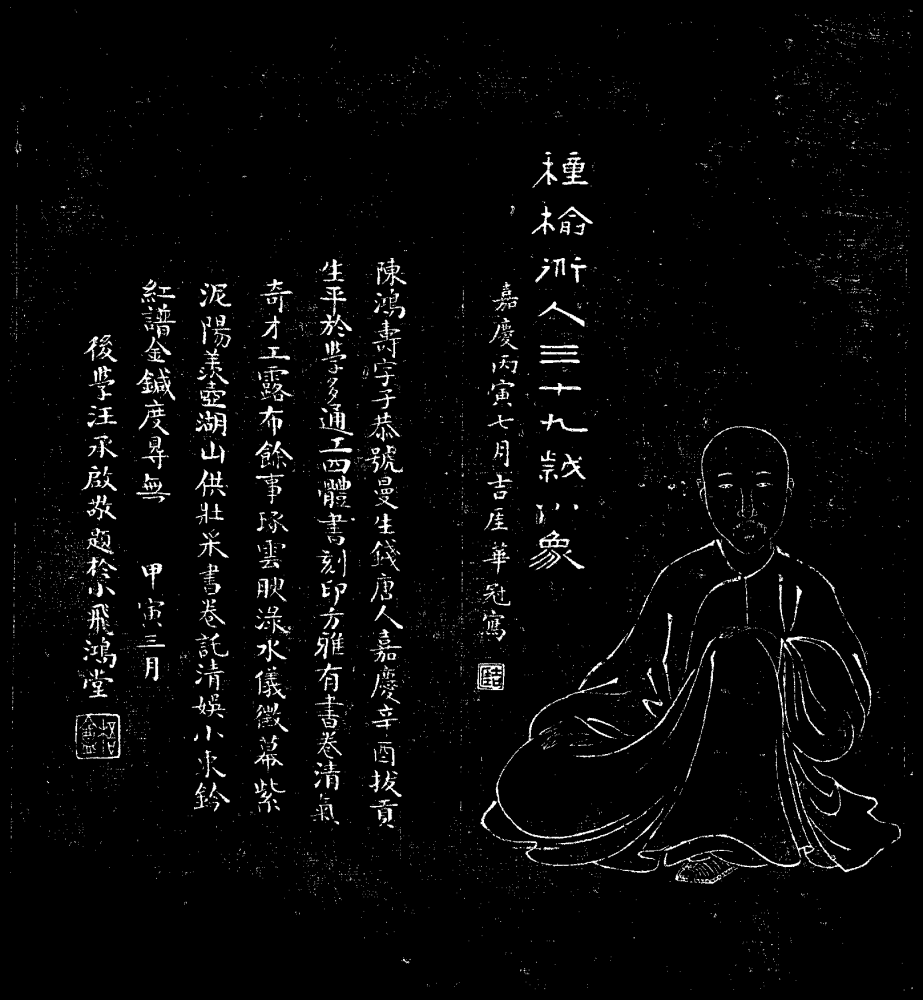 種榆仙人三十九歲小象
嘉慶丙寅七月吉厓華冠寫
陳鴻壽字子恭號曼生錢唐人嘉慶辛酉拔貢
生平於學多通工四體書刻印方雅有書卷清氣
奇才工露布餘事琢雲腴淥水儀徵幕紫
泥陽羨壺湖山供壯采書卷託清娛小宋鈐
紅譜金鍼度尋無 甲寅三月
後學汪承啟敬題於小飛鴻堂